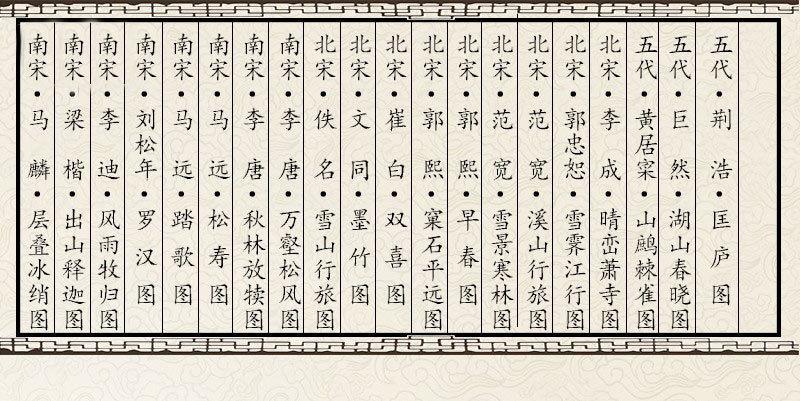 五代·荆浩·匡庐图
五代·巨然·湖山春晓图
五代·黄居寀·山鹧棘雀图
北宋·李成·晴峦萧寺图
北宋·郭忠恕·雪霁江行图
北宋·范宽·溪山行旅图
北宋·范宽·雪景寒林图
北宋·郭熙·早春图
北宋·郭熙·窠石平远图
北宋·崔白·双喜图
北宋·文同·墨竹图
北宋·佚名·雪山行旅图
南宋·李唐·万壑松风图
南宋·李唐·秋林放犊图
南宋·马远·松寿图
南宋·马远·踏歌图
南宋·刘松年·罗汉图
南宋·李迪·风雨牧归图
南宋·梁楷·出山释迦图
南宋·马麟·层叠冰绡图